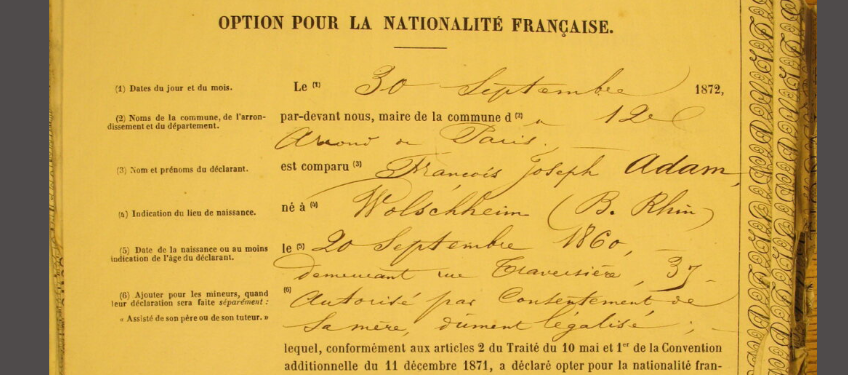 OPTION POUR LA NATIONALITÉ FRANÇAISE.
(1) Dates du jour et du mois.
Le (1) 30 Septembre 1872,
(2) Noms de la commune, de l'arron-
dissement et du département.
par-devant nous, maire de la commune d (2) u 12e
Arrond de Paris.
(3) Nom et prénoms du déclarant.
est comparu (3) François Joseph Adam,
(4) Indication du lieu de naissance.
né à (4) Wolschheim (B. Rhin)
(5) Date de la naissance ou au moins
indication de l'âge du déclarant.
le (5) 20 Septembre 1860,
demeurant rue Traversière, 37
(6) Ajouter pour les mineurs, quand
leur déclaration sera faite séparément :
« Assisté de son père ou de son tuteur. »
(6) Autorisé par Consentement de
sa mère, dûment légalisé ;
lequel, conformément aux articles 2 du Traité du 10 mai et 1er de la Convention
additionnelle du 11 décembre 1871, a déclaré opter pour la nationalité fran-